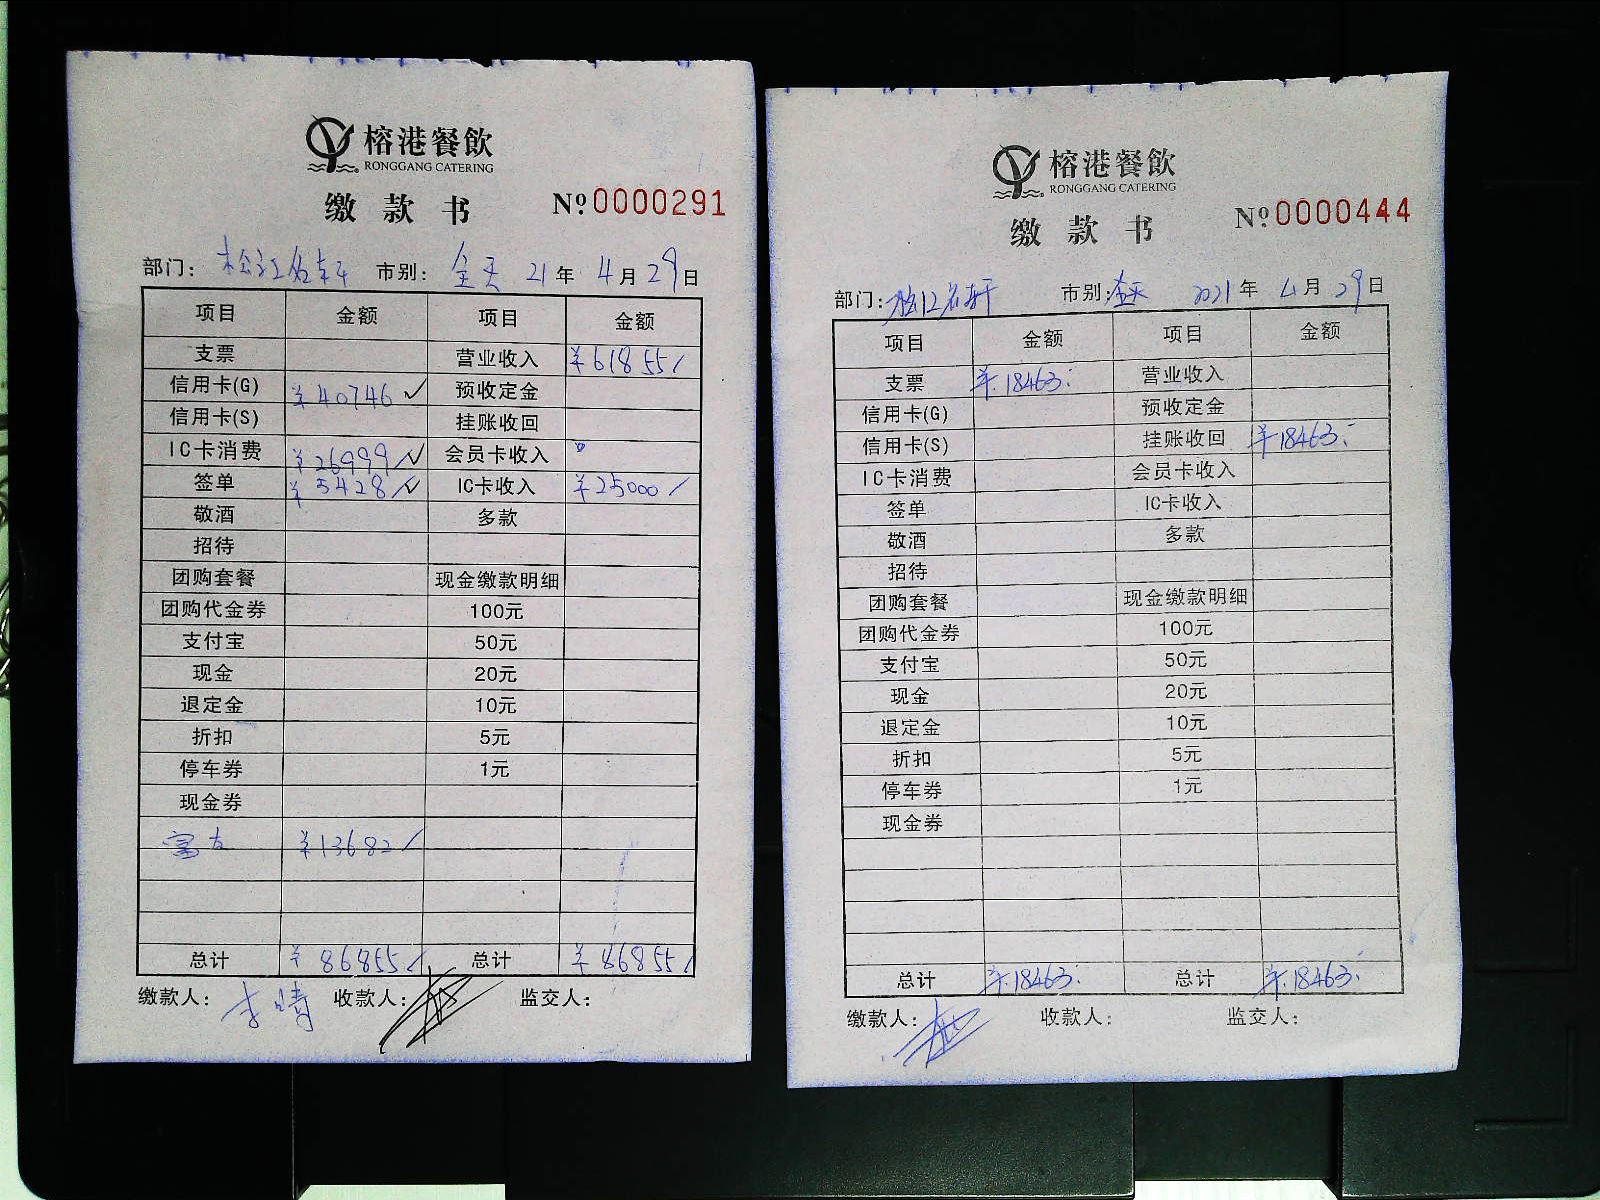 榕港餐飲
RONGGANG CATERING
缴款书 №0000291
部门: 松江名轩 市别: 全天 21年 4月29日
项目 金额 项目 金额
支票 营业收入 ¥61855
信用卡(G) ¥40746 预收定金
信用卡(S) 挂账收回
IC卡消费 ¥26999 会员卡收入
签单 ¥5428 IC卡收入 ¥25000
敬酒 多款
招待
团购套餐 现金缴款明细
团购代金券 100元
支付宝 50元
现金 20元
退定金 10元
折扣 5元
停车券 1元
现金券
富友 ¥13682
总计 ¥86855 总计 ¥86855
缴款人: 李晴 收款人: 监交人:
榕港餐飲
RONGGANG CATERING
缴款书 №0000444
部门: 松江名轩 市别: 全天 2021年 4月29日
项目 金额 项目 金额
支票 ¥18463 营业收入
信用卡(G) 预收定金
信用卡(S) 挂账收回 ¥18463
IC卡消费 会员卡收入
签单 IC卡收入
敬酒 多款
招待
团购套餐 现金缴款明细
团购代金券 100元
支付宝 50元
现金 20元
退定金 10元
折扣 5元
停车券 1元
现金券
总计 ¥18463 总计 ¥18463
缴款人: 收款人: 监交人: